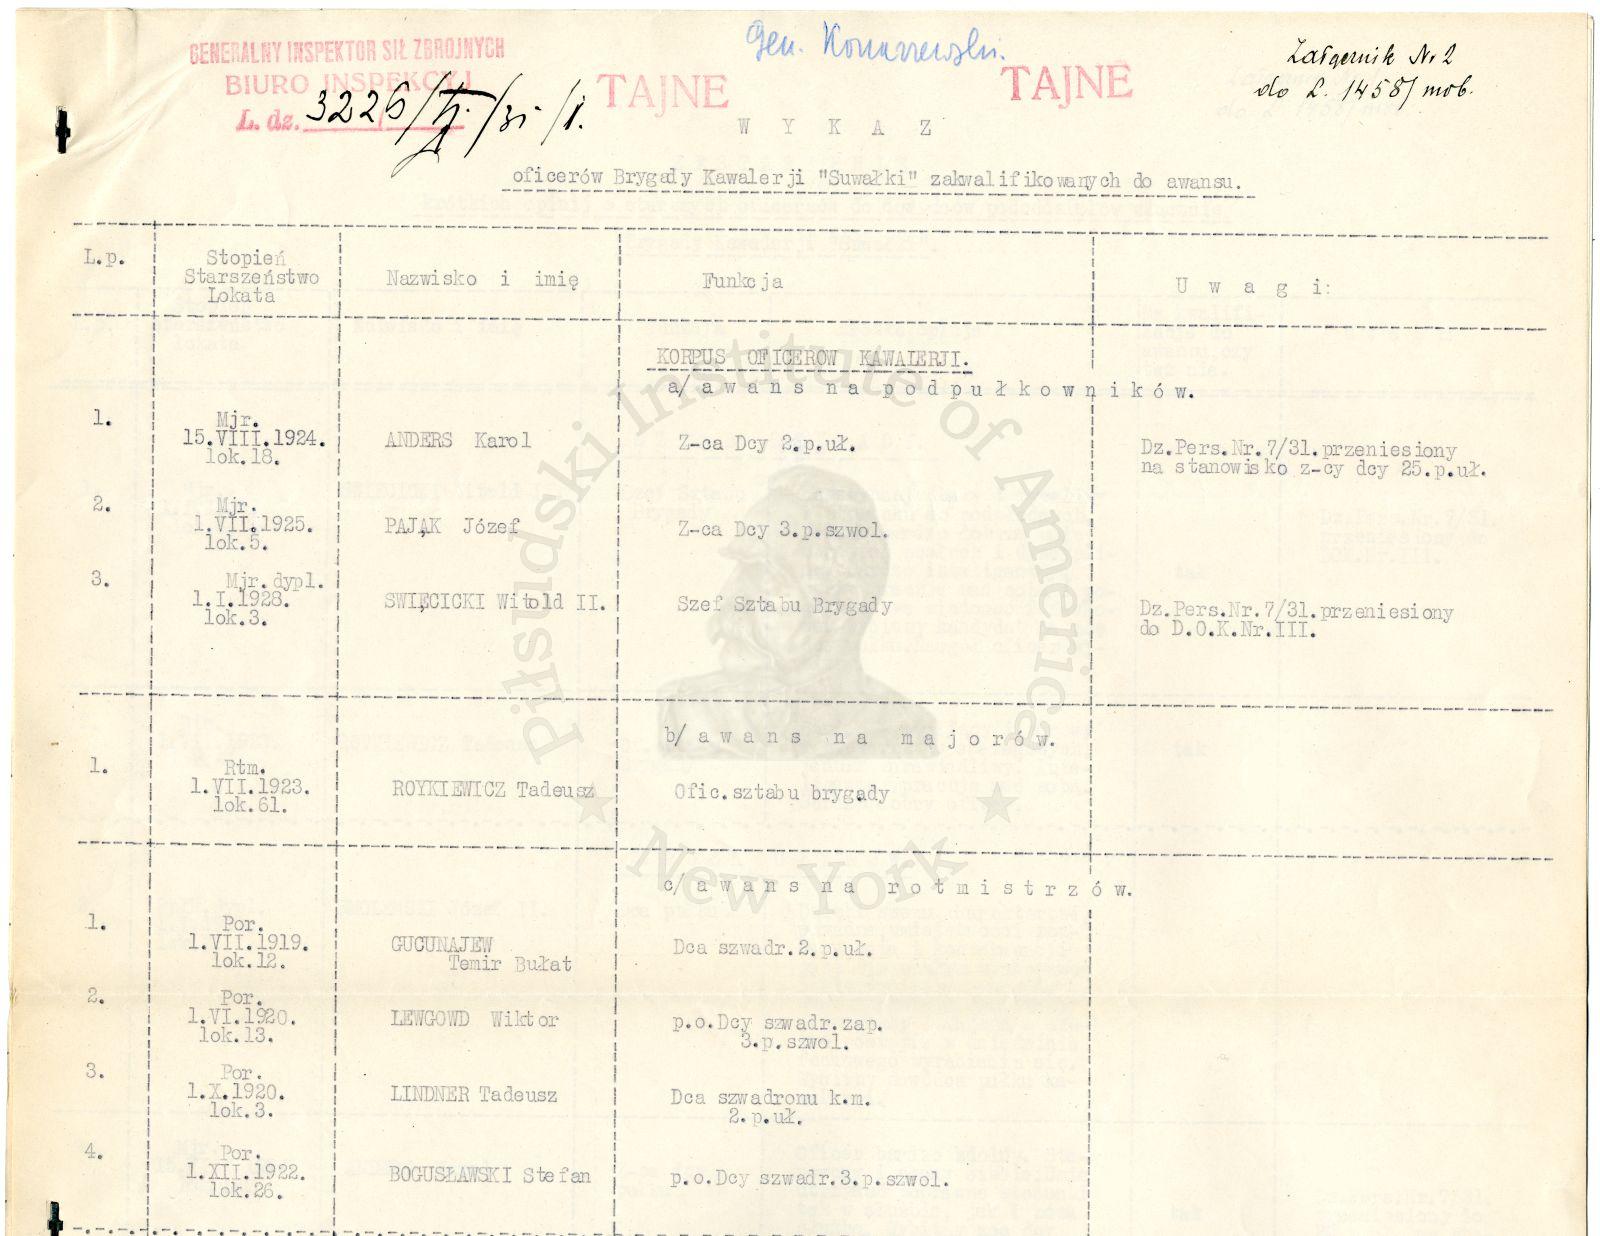 GENERALNY INSPEKTOR SIŁ ZBROJNYCH
BIURO INSPEKCYJ
L. dz. 3226/
TAJNE
Gen.
TAJNE
Załącznik Nr 2
do L. 1458/mob.
W Y K A Z
oficerów Brygady Kawalerji "Suwałki" zakwalifikowanych do awansu.
L.p.
Stopień
Starszeństwo
Lokata
Nazwisko i imię
Funkcja
U w a g i:
KORPUS OFICEROW KAWALERJI.
a/ a w a n s n a p o d p u ł k o w n i k ó w.
1.
Mjr.
15.VIII.1924.
lok.18.
ANDERS Karol
Z-ca Dcy 2.p.uł.
Dz.Pers.Nr.7/31.przeniesiony
na stanowisko z-cy dcy 25.p.uł.
2.
Mjr.
1.VII.1925.
lok.5.
PAJĄK Józef
Z-ca Dcy 3.p.szwol.
3.
Mjr.dypl.
1.I.1928.
lok.3.
SWIĘCICKI Witold II.
Szef Sztabu Brygady
Dz.Pers.Nr.7/31.przeniesiony
do D.O.K.Nr.III.
b/ a w a n s n a m a j o r ó w.
1.
Rtm.
1.VII.1923.
lok.61.
ROYKIEWICZ Tadeusz
Ofic.sztabu brygady
c/ a w a n s n a r o t m i s t r z ó w.
1.
Por.
1.VII.1919.
lok.12.
GUCUNAJEW
Temir Bułat
Dca szwadr.2.p.uł.
2.
Por.
1.VI.1920.
lok.13.
LEWGOWD Wiktor
p.o.Dcy szwadr.zap.
3.p.szwol.
3.
Por.
1.X.1920.
lok.3.
LINDNER Tadeusz
Dca szwadronu k.m.
2.p.uł.
4.
Por.
1.XII.1922.
lok.26.
BOGUSŁAWSKI Stefan
p.o.Dcy szwadr.3.p.szwol.
Piłsudski Institute of America
★ New York ★